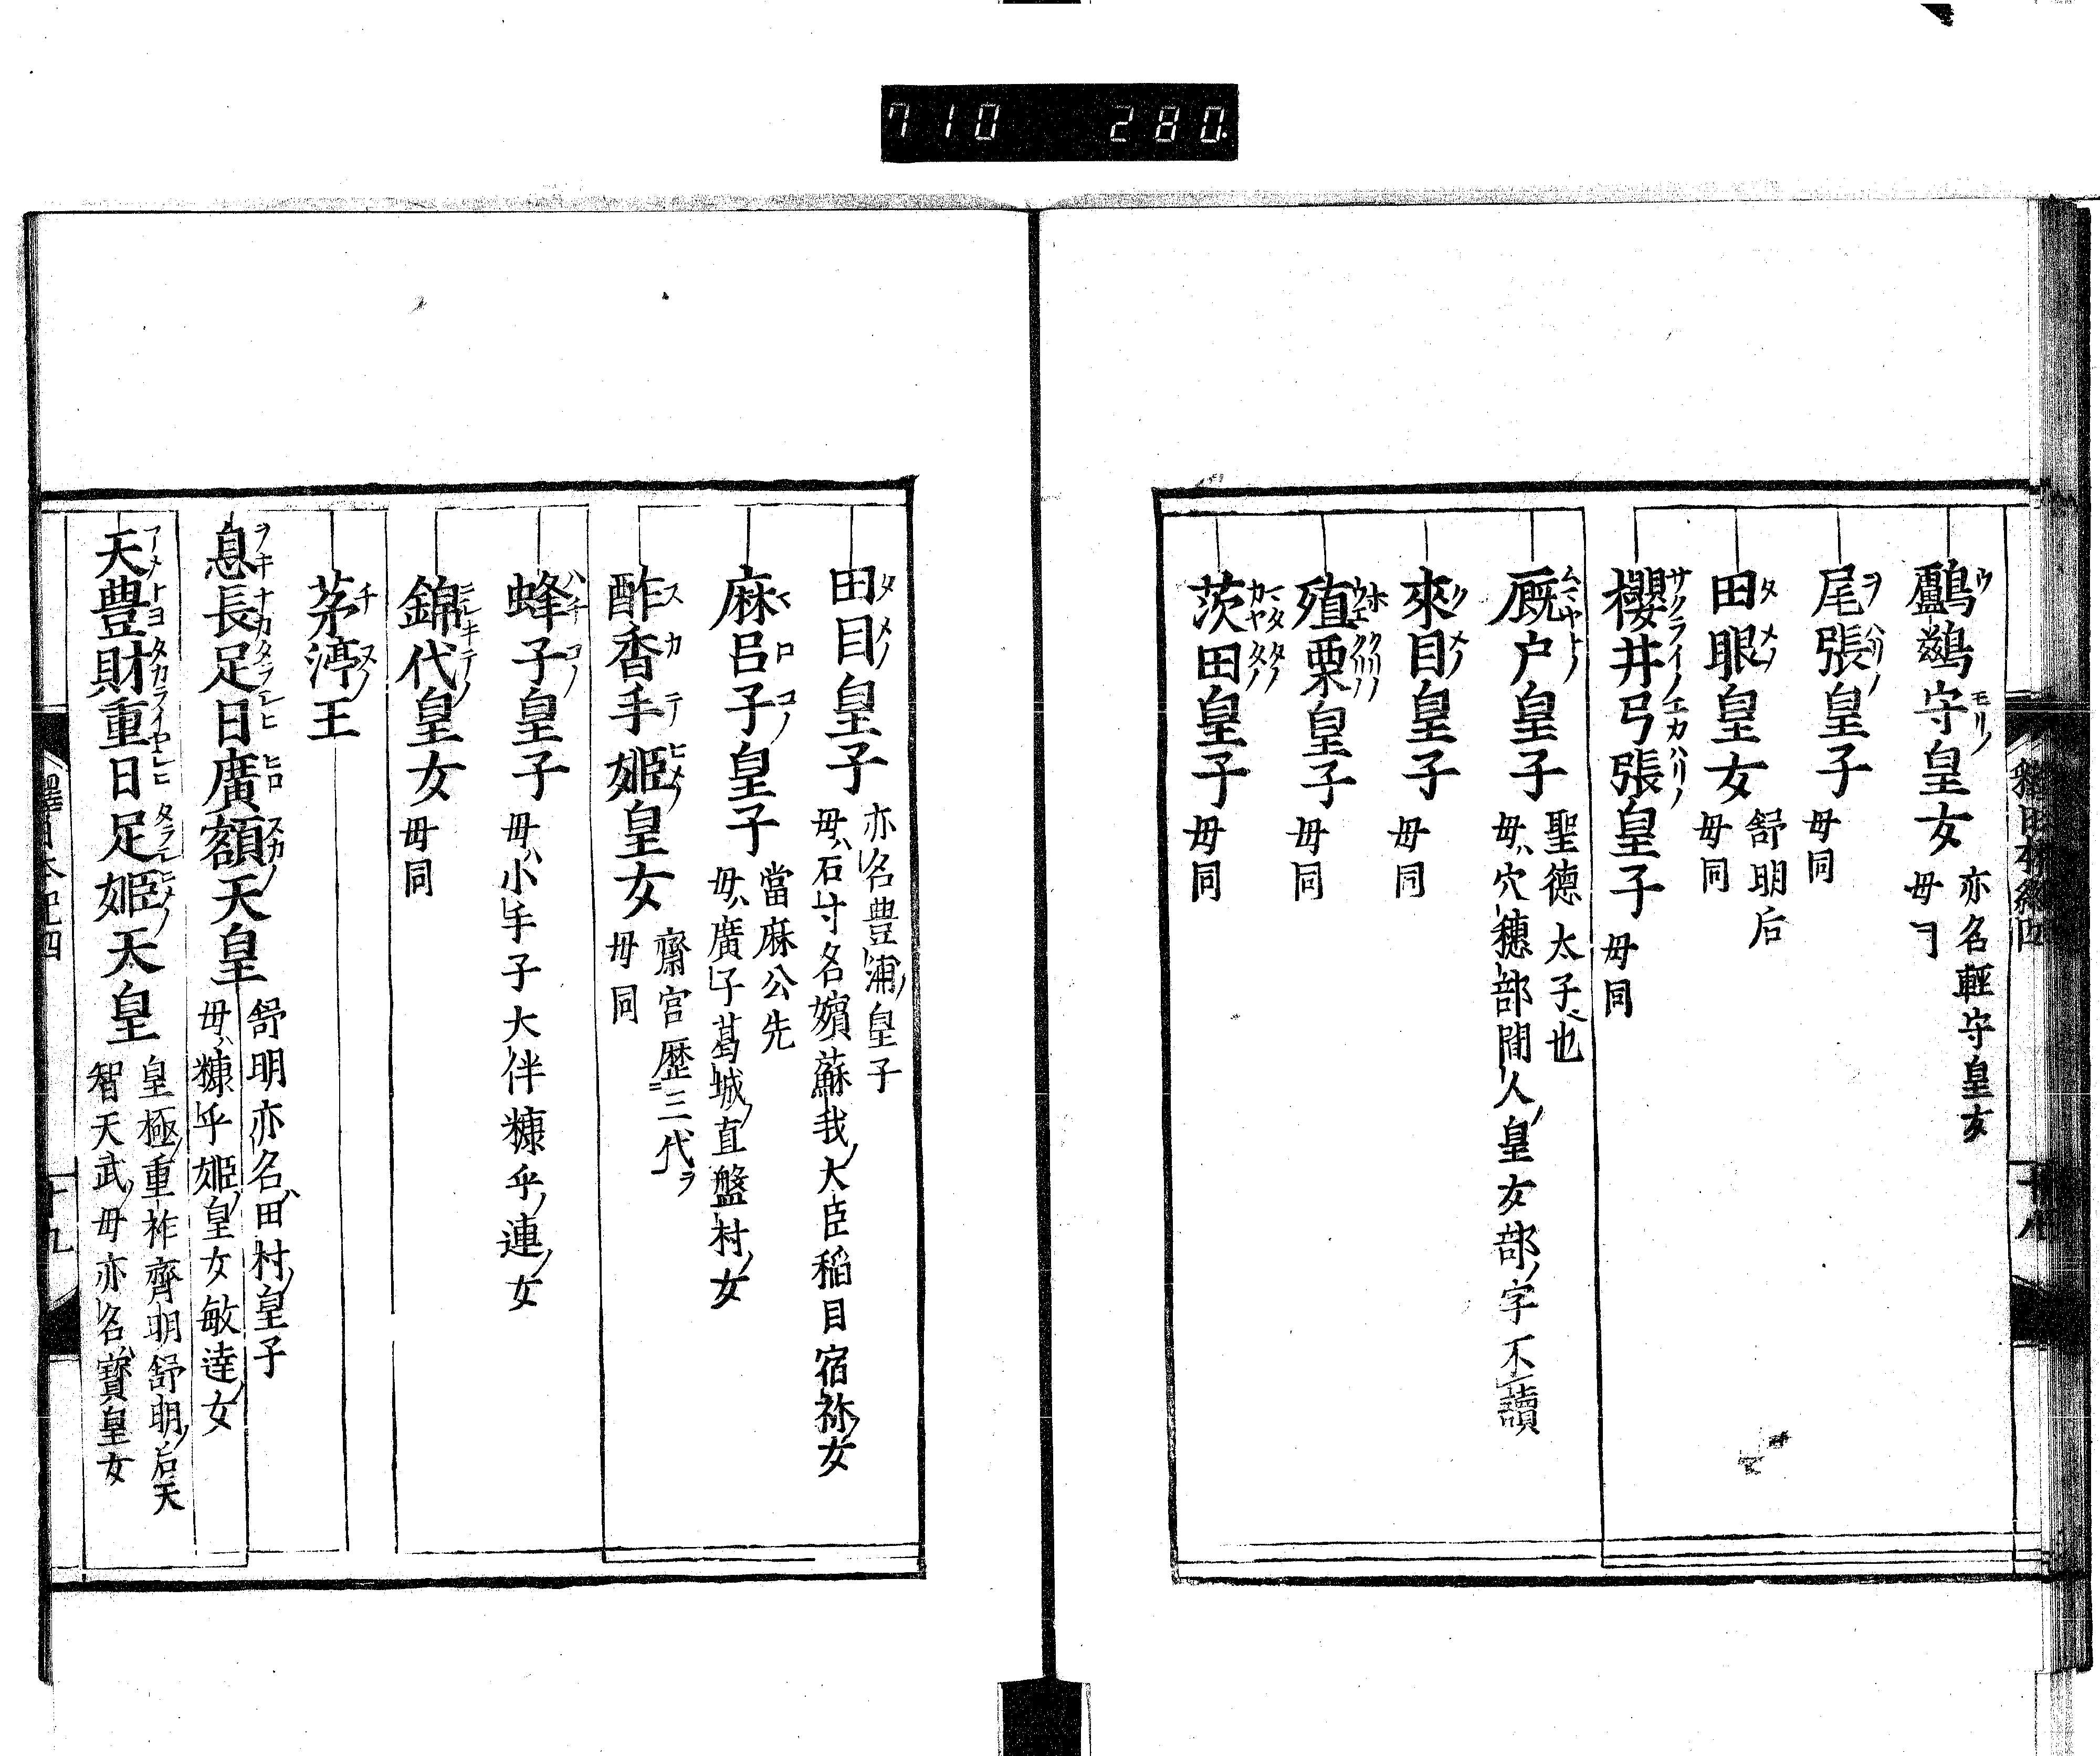 710 280.
鸕鷀守皇女
亦名輕守皇女
毋同
尾張皇子 毋同
田眼皇女
舒明后
毋同
櫻井弓張皇子 毋同
厩戸皇子
聖德太子也
毋ハ穴穗部間人皇女部ノ字不讀
來目皇子 毋同
殖栗皇子 毋同
茨田皇子 毋同
田目皇子
亦名豊浦ノ皇子
毋ハ石寸名嬪蘇我ノ大臣稲目宿祢ノ女
麻呂子皇子
當麻公先
毋ハ廣子葛城ノ直盤村ノ女
酢香手姫皇女
齋宮歴三代ヲ
毋同
蜂子皇子
毋ハ小手子大伴糠乎ノ連ノ女
錦代皇女 毋同
茅渟王
息長足日廣額天皇
舒明亦名ハ田村ノ皇子
毋ハ糠乎姫ノ皇女敏達ノ女
天豊財重日足姫天皇
皇極ノ重祚齊明舒明ノ后天
智天武ノ毋亦名ハ寳皇女
十九